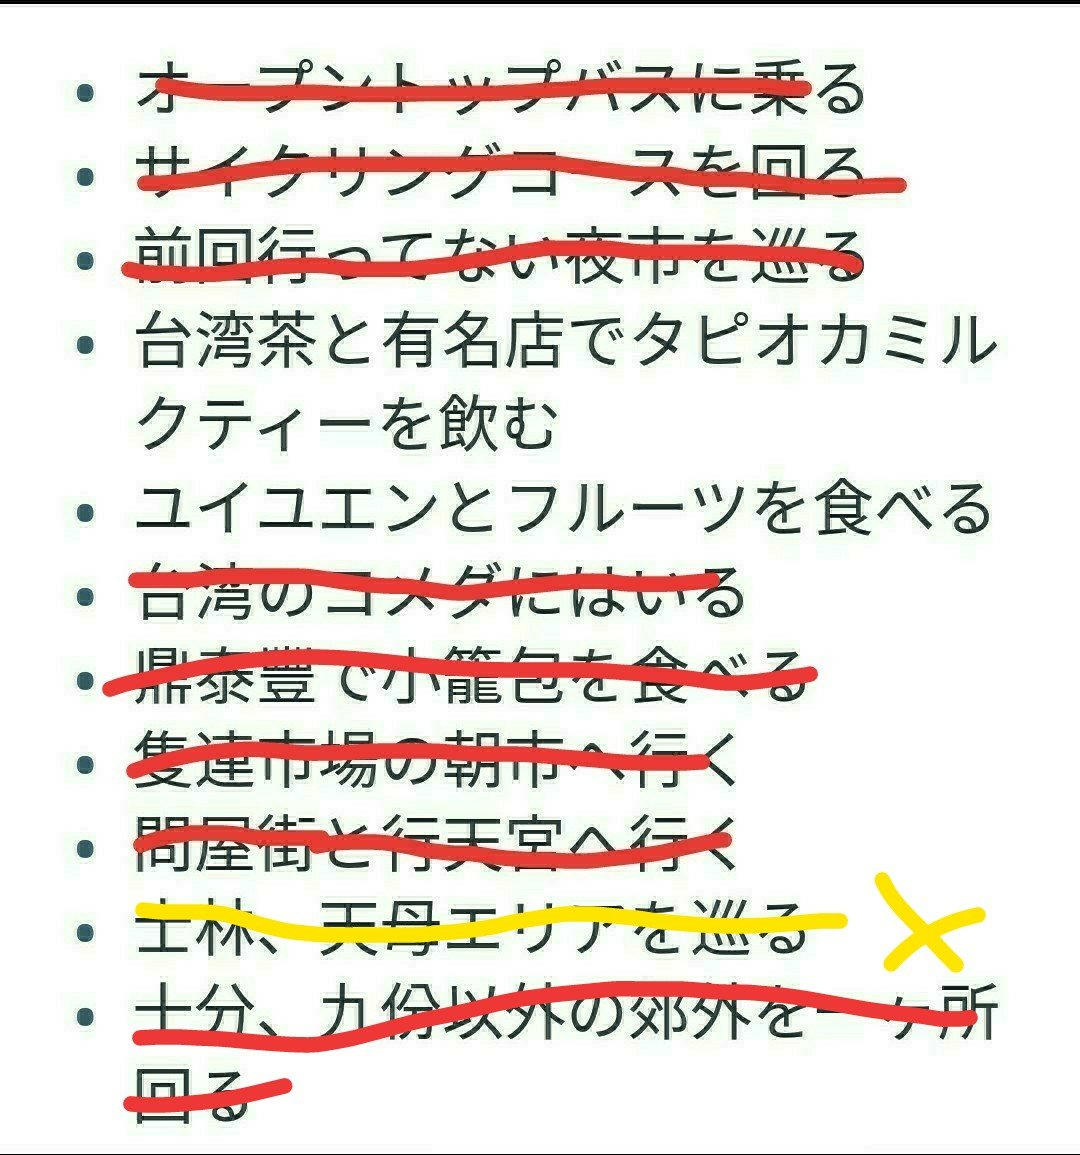 ・オープントップバスに乗る
・サイクリングコースを回る
・前回行ってない夜市を巡る
・台湾茶と有名店でタピオカミル
クティーを飲む
・ユイユエンとフルーツを食べる
・台湾のコメダにはいる
・鼎泰豐で小籠包を食べる
・隻連市場の朝市へ行く
・問屋街と行天宮へ行く
・士林、天母エリアを巡る
・十分、九份以外の郊外を一ヶ所
回る